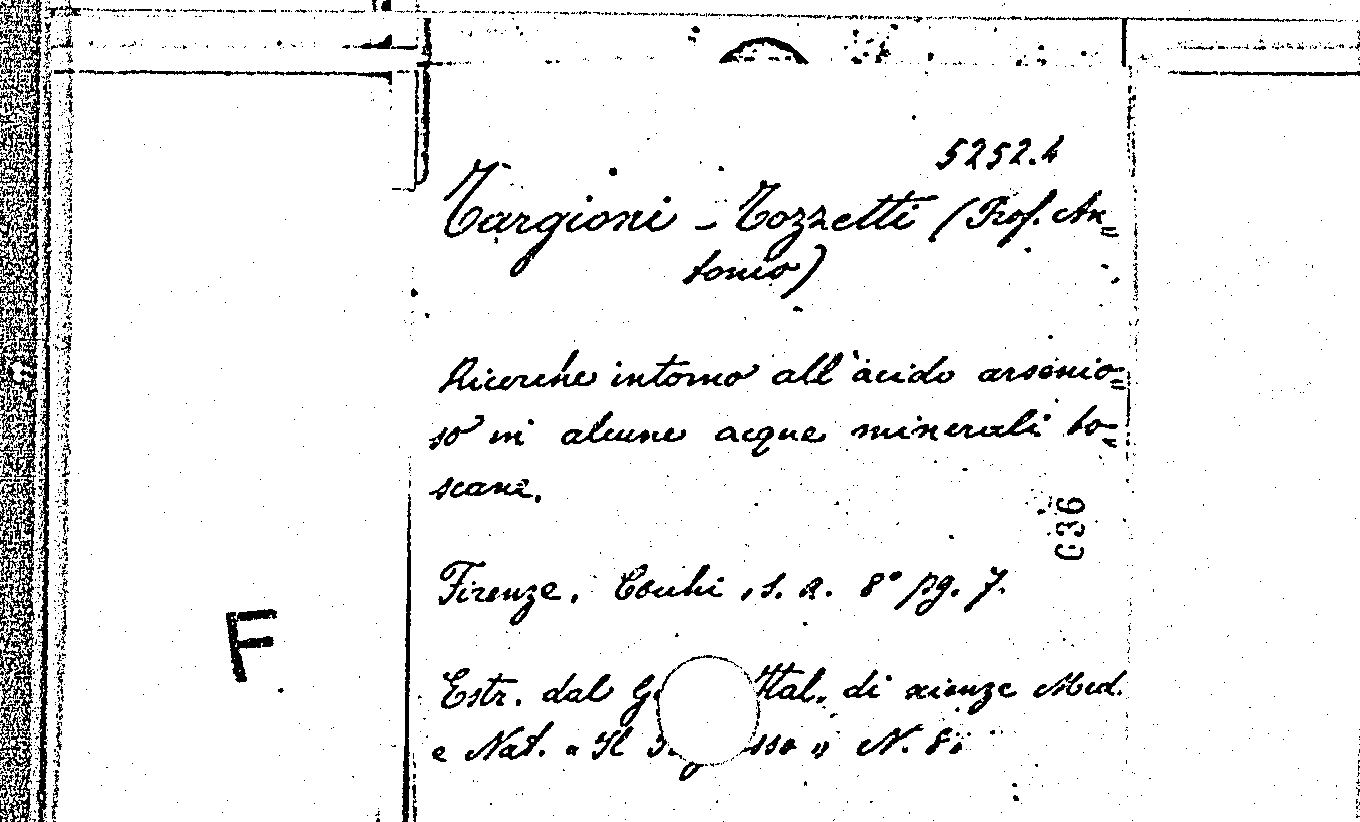 5252.4
Targioni - Tozzetti (Prof. An=
tonio)
Ricerche intorno all'acido arsenio=
so in alcune acque minerali to=
scane.
036
Firenze, Cocchi, s. a. 8° pg. 7.
F
Estr. dal Ital. di scienze Med.
e Nat. "Il N. 8.